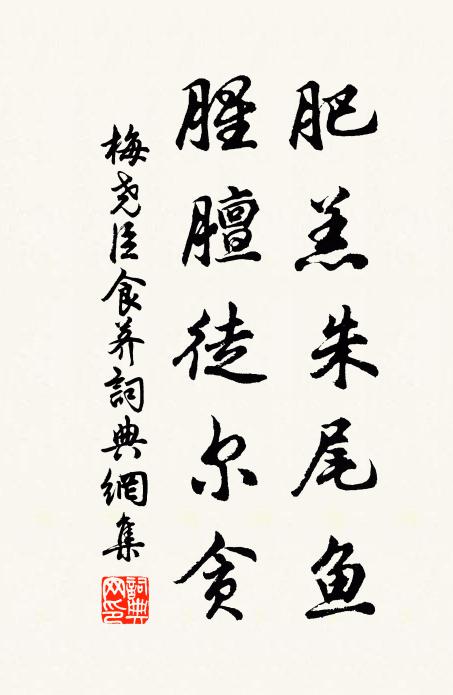 肥羔朱尾鱼
腥膻徒尔贪
梅尧臣食荠詞典網集
詞典
网印